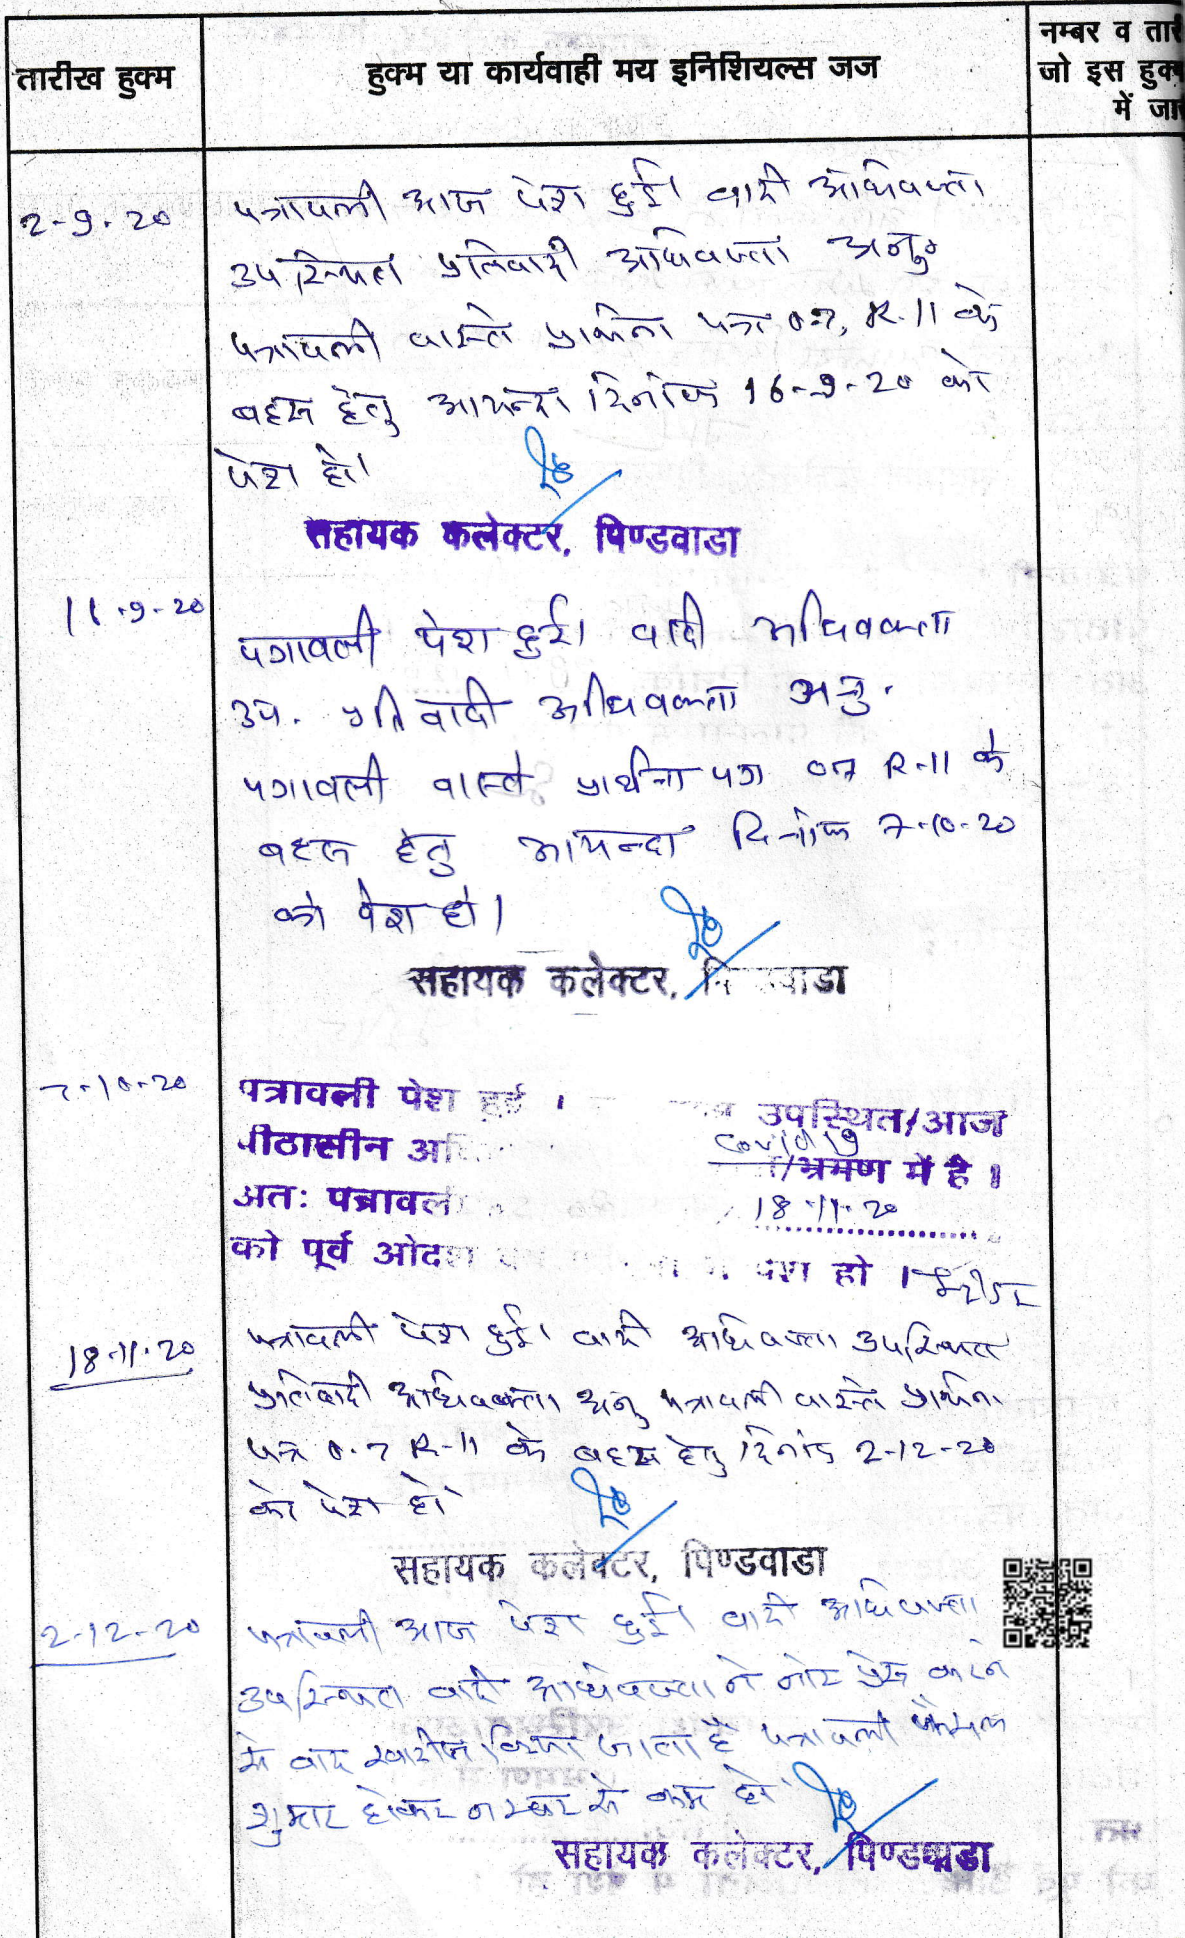 तारीख हुक्म
हुक्म या कार्यवाही मय इनिशियल्स जज
नम्बर व तारी
जो इस हुक्म
में जा
2-9-20
पत्रावली आज पेश हुई। वादी अधिवक्ता
उपस्थित प्रतिवादी अधिवक्ता अनु०
पत्रावली वास्ते प्रार्थना पत्र 0-7, R-11 के
बहस हेतु आयन्दा दिनांक 16-9-20 को
पेश हो।
सहायक कलेक्टर, पिण्डवाडा
11-9-20
पत्रावली पेश हुई। वादी अधिवक्ता
उप. प्रतिवादी अधिवक्ता अनु.
पत्रावली वास्ते प्रार्थना पत्र 07 R-11 के
बहस हेतु आयन्दा दिनांक 7-10-20
को पेश हो।
सहायक कलेक्टर,
7-10-20
पत्रावली पेश हुई । उपस्थित/आज
पीठासीन Covid 19
/भ्रमण में है ।
अतः पत्रावली 18-11-20
को पूर्व पेश हो ।
18-11-20
पत्रावली पेश हुई। वादी अधिवक्ता उपस्थित
प्रतिवादी अधिवक्ता अनु पत्रावली वास्ते प्रार्थना
पत्र 0-7 R-11 के बहस हेतु दिनांक 2-12-20
को पेश हो
सहायक कलेक्टर, पिण्डवाडा
2-12-20
पत्रावली आज पेश हुई। वादी अधिवक्ता
उपस्थित वादी अधिवक्ता ने नोट प्रेस करने
से वाद खारीज किया जाता है पत्रावली फैसल
शुमार होकर नम्बर से कम हो
सहायक कलेक्टर, पिण्डवाडा